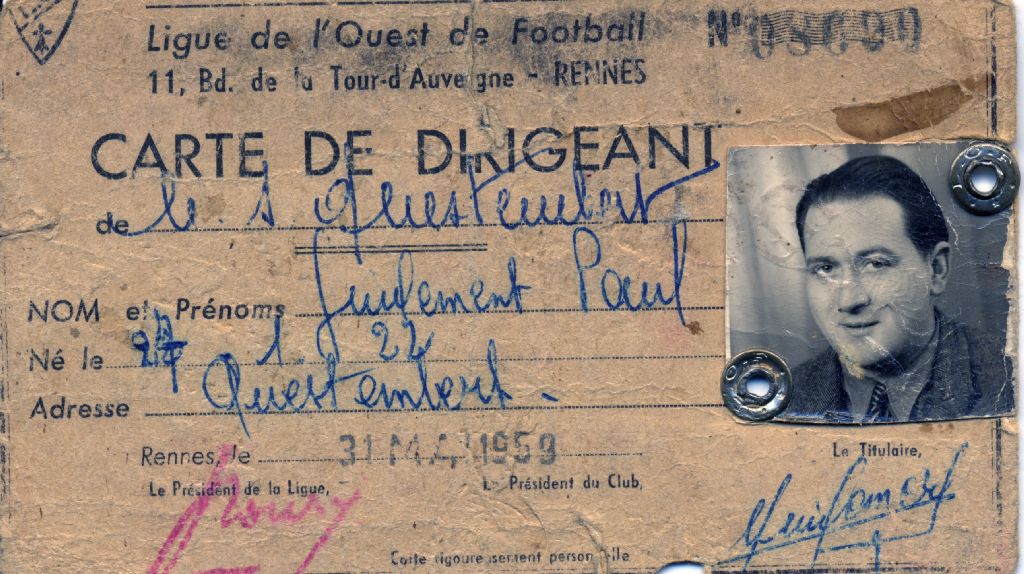 Ligue de l'Ouest de Football N° 08690
11, Bd. de la Tour-d'Auvergne - RENNES
CARTE DE DIRIGEANT
de U. S. Questembert
NOM et Prénoms Guillemont Paul
Né le 27 1. 22
Adresse Questembert.
Rennes, le 31 MAI 1959
Le Président de la Ligue, Le Président du Club, Le Titulaire,
Carte rigoureusement personnelle